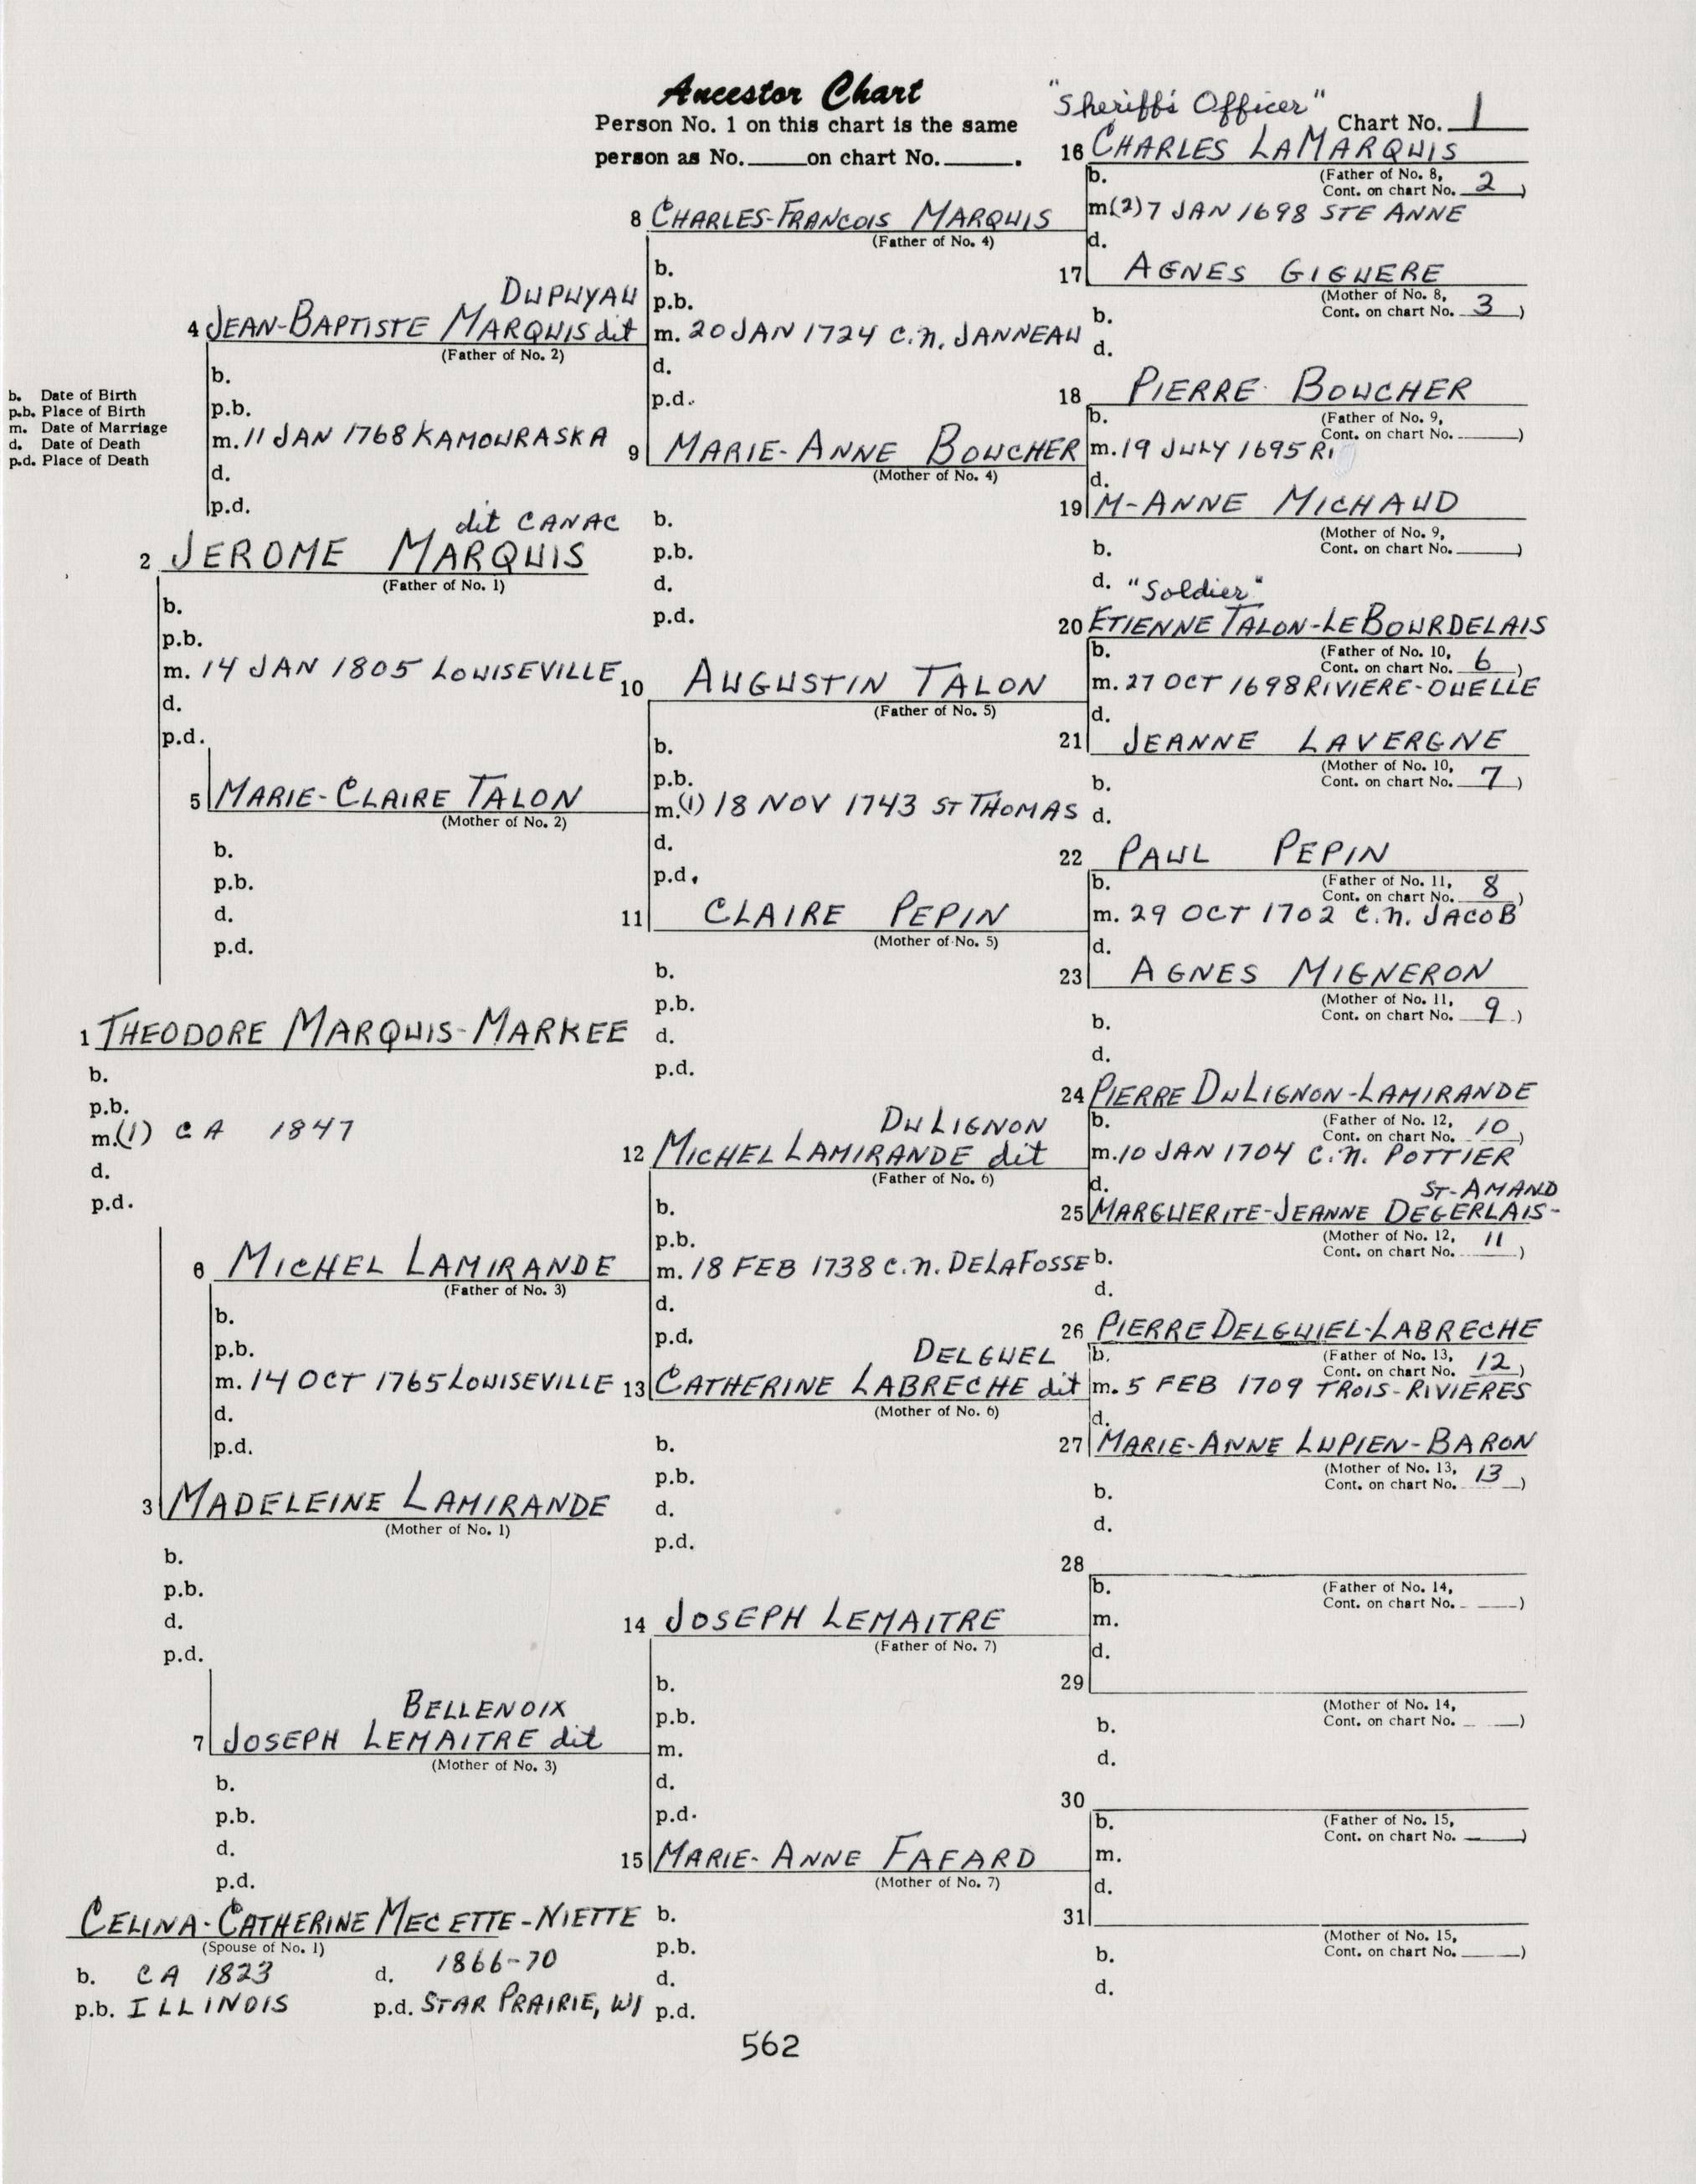 Ancestor Chart
Person No. 1 on this chart is the same
person as No. on chart No. .
"Sheriff's Officer"
Chart No. 1
16 CHARLES LAMARQUIS
b. (Father of No. 8,
Cont. on chart No. 2 )
m(2) 7 JAN 1698 STE ANNE
d.
17 AGNES GIGUERE
(Mother of No. 8,
b. Cont. on chart No. 3 )
d.
8 CHARLES-FRANCOIS MARQUIS
(Father of No. 4)
b.
p.b.
m. 20 JAN 1724 C.N. JANNEAU
d.
p.d.
DUPUYAU
4 JEAN-BAPTISTE MARQUIS dit
(Father of No. 2)
b.
p.b.
m. 11 JAN 1768 KAMOURASKA
d.
p.d.
b. Date of Birth
p.b. Place of Birth
m. Date of Marriage
d. Date of Death
p.d. Place of Death
9 MARIE-ANNE BOUCHER
(Mother of No. 4)
b.
p.b.
d.
p.d.
18 PIERRE BOUCHER
b. (Father of No. 9,
Cont. on chart No. )
m. 19 JULY 1695 RI
d.
19 M-ANNE MICHAUD
(Mother of No. 9,
b. Cont. on chart No. )
d.
dit CANAC
2 JEROME MARQUIS
(Father of No. 1)
b.
p.b.
m. 14 JAN 1805 LOUISEVILLE
d.
p.d.
"Soldier"
20 ETIENNE TALON-LEBOURDELAIS
b. (Father of No. 10,
Cont. on chart No. 6 )
m. 27 OCT 1698 RIVIERE-OUELLE
d.
21 JEANNE LAVERGNE
(Mother of No. 10,
b. Cont. on chart No. 7 )
d.
10 AUGUSTIN TALON
(Father of No. 5)
b.
p.b.
m.(1) 18 NOV 1743 ST THOMAS
d.
p.d.
5 MARIE-CLAIRE TALON
(Mother of No. 2)
b.
p.b.
d.
p.d.
22 PAUL PEPIN
b. (Father of No. 11,
Cont. on chart No. 8 )
m. 29 OCT 1702 C.N. JACOB
d.
11 CLAIRE PEPIN
(Mother of No. 5)
b.
p.b.
d.
p.d.
23 AGNES MIGNERON
(Mother of No. 11,
b. Cont. on chart No. 9 )
d.
1 THEODORE MARQUIS-MARKEE
b.
p.b.
m.(1) CA 1847
d.
p.d.
24 PIERRE DULIGNON-LAMIRANDE
b. (Father of No. 12,
Cont. on chart No. 10 )
m. 10 JAN 1704 C.N. POTTIER
d.
ST-AMAND
25 MARGUERITE-JEANNE DEGERLAIS-
(Mother of No. 12,
b. Cont. on chart No. 11 )
d.
DULIGNON
12 MICHEL LAMIRANDE dit
(Father of No. 6)
b.
p.b.
m. 18 FEB 1738 C.N. DELAFOSSE
d.
p.d.
6 MICHEL LAMIRANDE
(Father of No. 3)
b.
p.b.
m. 14 OCT 1765 LOUISEVILLE
d.
p.d.
26 PIERRE DELGUIEL-LABRECHE
b. (Father of No. 13,
Cont. on chart No. 12 )
m. 5 FEB 1709 TROIS-RIVIERES
d.
DELGUEL
13 CATHERINE LABRECHE dit
(Mother of No. 6)
b.
p.b.
d.
p.d.
27 MARIE-ANNE LUPIEN-BARON
(Mother of No. 13,
b. Cont. on chart No. 13 )
d.
3 MADELEINE LAMIRANDE
(Mother of No. 1)
b.
p.b.
d.
p.d.
28
b. (Father of No. 14,
Cont. on chart No. )
m.
d.
14 JOSEPH LEMAITRE
(Father of No. 7)
b.
p.b.
m.
d.
p.d.
29
(Mother of No. 14,
b. Cont. on chart No. )
d.
BELLENOIX
7 JOSEPH LEMAITRE dit
(Mother of No. 3)
b.
p.b.
d.
p.d.
30
b. (Father of No. 15,
Cont. on chart No. )
m.
d.
15 MARIE-ANNE FAFARD
(Mother of No. 7)
b.
p.b.
d.
p.d.
31
(Mother of No. 15,
b. Cont. on chart No. )
d.
CELINA-CATHERINE MECETTE-NIETTE
(Spouse of No. 1)
b. CA 1823 d. 1866-70
p.b. ILLINOIS p.d. STAR PRAIRIE, WI
562